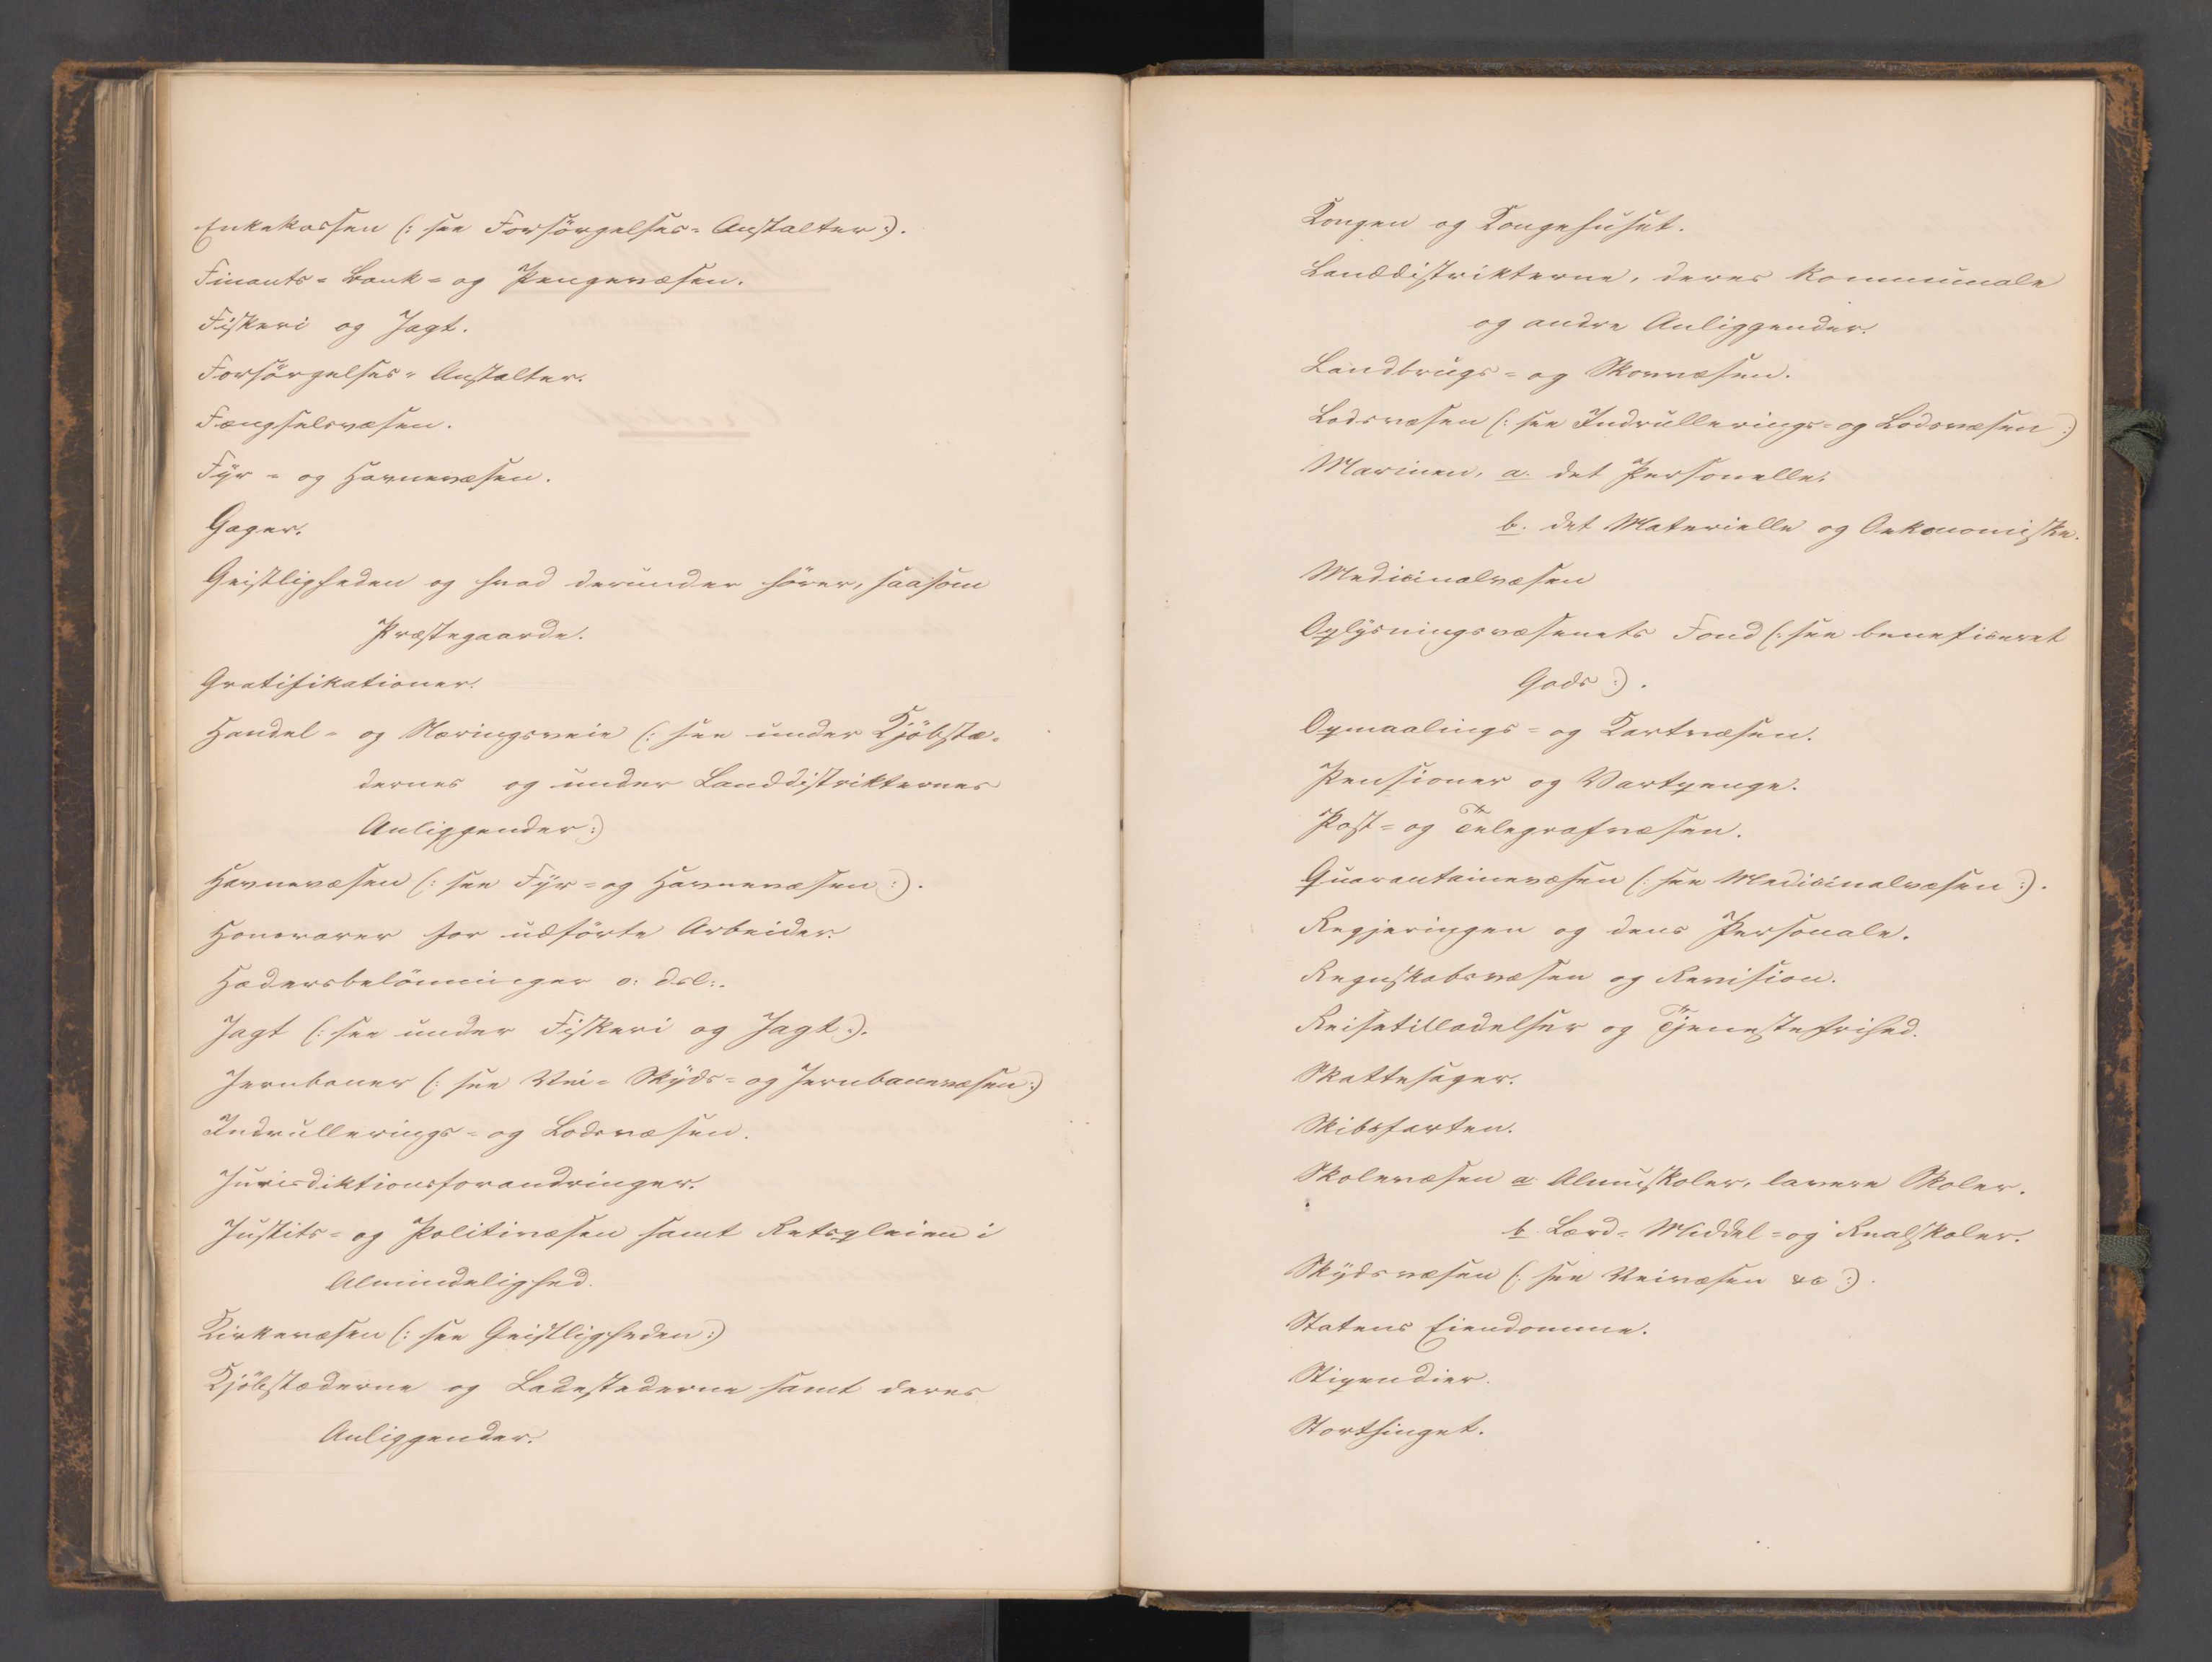 Enkekassen (: see Forsörgelses= Anstalter :).
Finants= Bank= og Pengevæsen.
Fiskeri og Jagt.
Forsörgelses= Anstalter.
Fængselsvæsen.
Fyr= og Havnevæsen.
Gager.
Geistligheden og hvad derunder hörer, saasom
Præstegaarde.
Gratifikationer.
Handel= og Næringsveie (: see under Kjöbstæ=
dernes og under Landdistrikternes
Anliggender :)
Havnevæsen (: see Fyr= og Havnevæsen :).
Honorarer for udförte Arbeider.
Hædersbelönninger o: dsl:.
Jagt (: see under Fiskeri og Jagt :).
Jernbaner (: see Vei= Skyds= og Jernbanevæsen :)
Indrullerings= og Lodsvæsen.
Jurisdiktionsforandringer.
Justits= og Politivæsen samt Retspleien i
Almindelighed.
Kirkevæsen (: see Geistligheden :)
Kjöbstæderne og Ladestederne samt deres
Anliggender.
Kongen og Kongehuset.
Landdistrikterne, deres kommunale
og andre Anliggender.
Landbrugs= og Skovvæsen.
Lodsvæsen (: see Indrullerings= og Lodsvæsen :)
Marinen, a. det Personelle.
b. det Materielle og Oekonomiske.
Medicinalvæsen
Oplysningsvæsenets Fond (: see beneficeret
Gods :).
Opmaalings= og Kartvæsen.
Pensioner og Vartpenge.
Post= og Telegrafvæsen.
Quarantainevæsen (: see Medicinalvæsen :).
Regjeringen og dens Personale.
Regnskabsvæsen og Revision.
Reisetilladelser og Tjenestefrihed.
Skattesager.
Skibsfarten.
Skolevæsen a. Almuskoler, lavere Skoler.
b. Lærd= Middel= og Realskoler.
Skydsvæsen (: see Veivæsen &c :).
Statens Eiendomme.
Stipendier.
Storthinget.